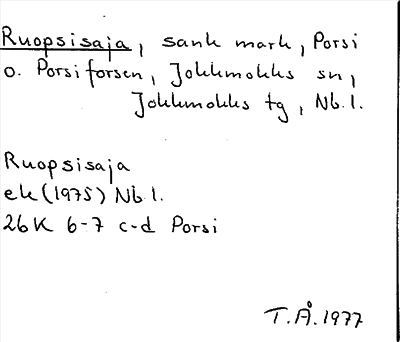 Ruopsisaja, sank mark, Porsi
o. Porsiforsen, Jokkmokks sn,
Jokkmokks tg, Nb.l.
Ruopsisaja
ek (1975) Nb l.
26K 6-7 c-d Porsi
T.Å. 1977